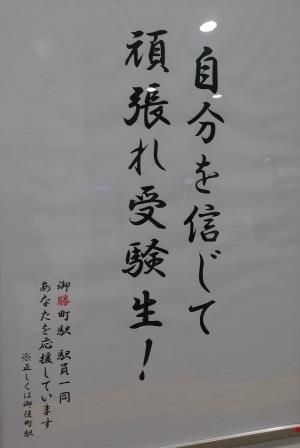 自分を信じて
頑張れ受験生！
御勝町駅 駅員一同
あなたを応援しています
※正しくは御徒町駅